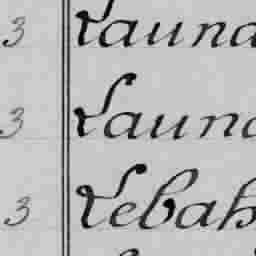 3 Launa
3 Launa
3 Lebah